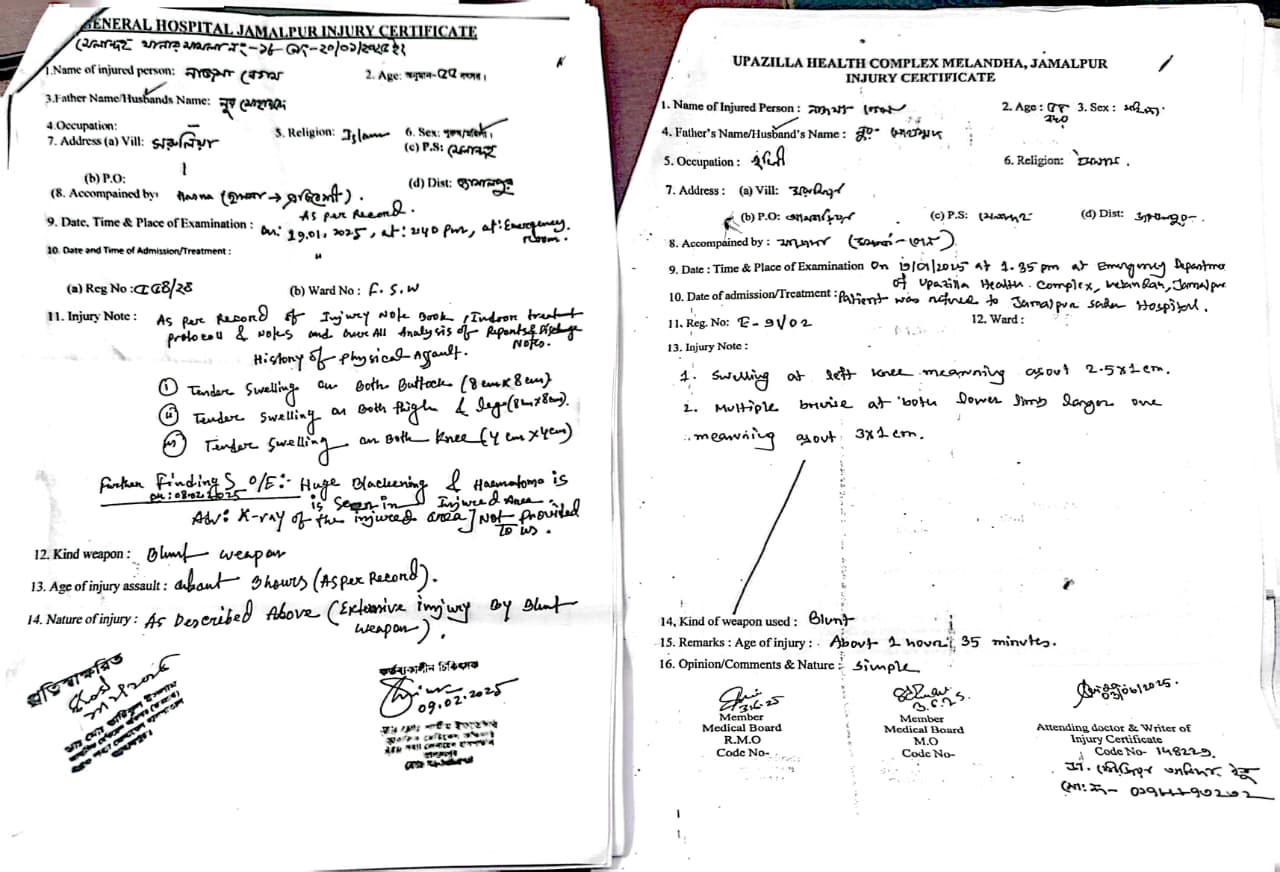 GENERAL HOSPITAL JAMALPUR INJURY CERTIFICATE
মেলান্দহ থানার মামলা নং-১৬ তাং-২০/০১/২০২৫ ইং
1.Name of injured person: নাজমা বেগম
2. Age: অনুমান-৫৫ বৎসর।
3.Father Name/Husbands Name: নুর মোহাম্মদ
4.Occupation:
5. Religion: Islam
6. Sex: পুরুষ/মহিলা।
7. Address (a) Vill:
(c) P.S: মেলান্দহ
(b) P.O:
(d) Dist: জামালপুর
(8. Accompained by: Hasna
As per Record.
9. Date, Time & Place of Examination : on: 19.01.2025, at: 2:40 pm, at: Emergency Room.
10. Date and Time of Admission/Treatment : "
(a) Reg No :
(b) Ward No : F.S.W
11. Injury Note : As per Record of Injury Note Book, Indoor treatment
protocoll & Notes and Over All Analysis of Reports & Discharge
Notes.
History of Physical Assault.
(i) Tender Swelling on Both Buttock (8cm x 8cm)
(ii) Tender Swelling on Both thigh & legs (8cm x 8cm).
(iii) Tender Swelling on Both Knee (4cm x 4cm)
Further Findings O/E:- Huge Blackening & Haematoma is
on: 08.02.2025
is seen in Injured Area.
Adv: X-ray of the injured area] Not Provided
To us.
12. Kind weapon : Blunt weapon
13. Age of injury assault : about 3 hours (As per Record).
14. Nature of injury : As Described Above (Extensive injury by Blunt
weapon).
প্রতিস্বাক্ষরিত
কর্তব্যকালীন চিকিৎসক
09.02.2025
UPAZILLA HEALTH COMPLEX MELANDHA, JAMALPUR
INJURY CERTIFICATE
1. Name of Injured Person : নাজমা বেগম
2. Age : ৫৫
3. Sex : মহিলা
4. Father's Name/Husband's Name : নুর মোহাম্মদ
5. Occupation : গৃহিণী
6. Religion : ইসলাম
7. Address : (a) Vill:
(b) P.O:
(c) P.S: মেলান্দহ
(d) Dist: জামালপুর
8. Accompained by :
9. Date : Time & Place of Examination On 19/01/2025 at 1.35 pm at Emergency Department
of Upazilla Health Complex, Melandah, Jamalpur
10. Date of admission/Treatment : Patient was refered to Jamalpur sader Hospital.
11. Reg. No: E-91/02
12. Ward :
13. Injury Note :
1. Swelling at left knee mearning about 2.5x1 cm.
2. Multiple bruise at both lower limb larger one
mearning about 3x1 cm.
14, Kind of weapon used : Blunt
15. Remarks : Age of injury : About 1 hour, 35 minutes.
16. Opinion/Comments & Nature : Simple
Member
Medical Board
R.M.O
Code No-
Member
Medical Board
M.O
Code No-
Attending doctor & Writer of
Injury Certificate
Code No- 148229.